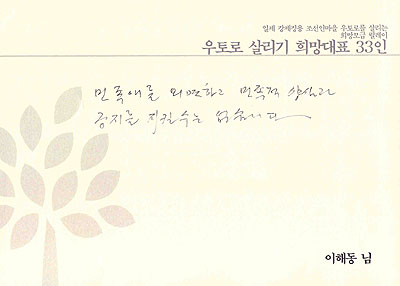 일제 강제징용 조선인마을 우토로를 살리는
희망모금 릴레이
우토로 살리기 희망대표 33인
민족애를 외면하고 민족적 양심과
긍지를 지킬수는 없습니다
이해동 님